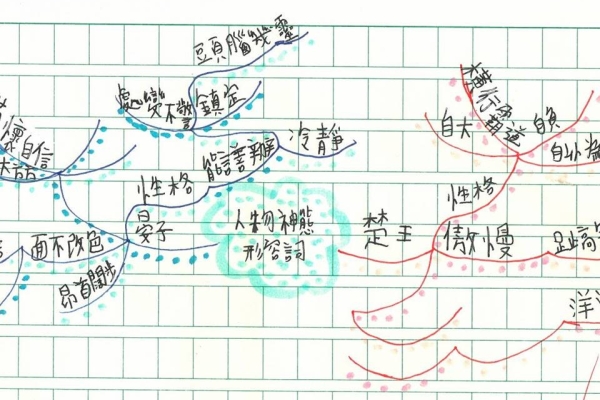 頭腦機靈
處變不驚
鎮定
冷靜
能言善辯
自信
性格
晏子
面不改色
昂首闊步
人物神態
形容詞
橫行霸道
自大
自負
性格
楚王
傲慢
趾高
洋